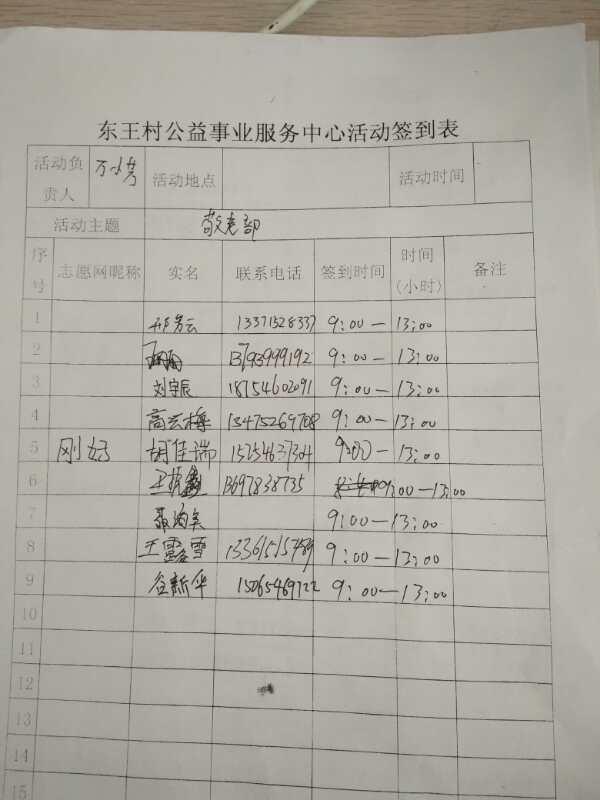 东王村公益事业服务中心活动签到表
活动负责人 万小芳 活动地点 活动时间
活动主题 敬老部
序号 志愿网昵称 实名 联系电话 签到时间 时间(小时) 备注
1 邢秀云 13371528337 9:00—13:00
2 13793999192 9:00—13:00
3 刘宇辰 18754602091 9:00—13:00
4 高云梅 15475269708 9:00—13:00
5 刚好 胡佳瑞 15254637304 9:00—13:00
6 13697838735 9:00—13:00
7 9:00—13:00
8 王露雪 13361515789 9:00—13:00
9 谷新华 15065469722 9:00—13:00
10
11
12
13
14
15